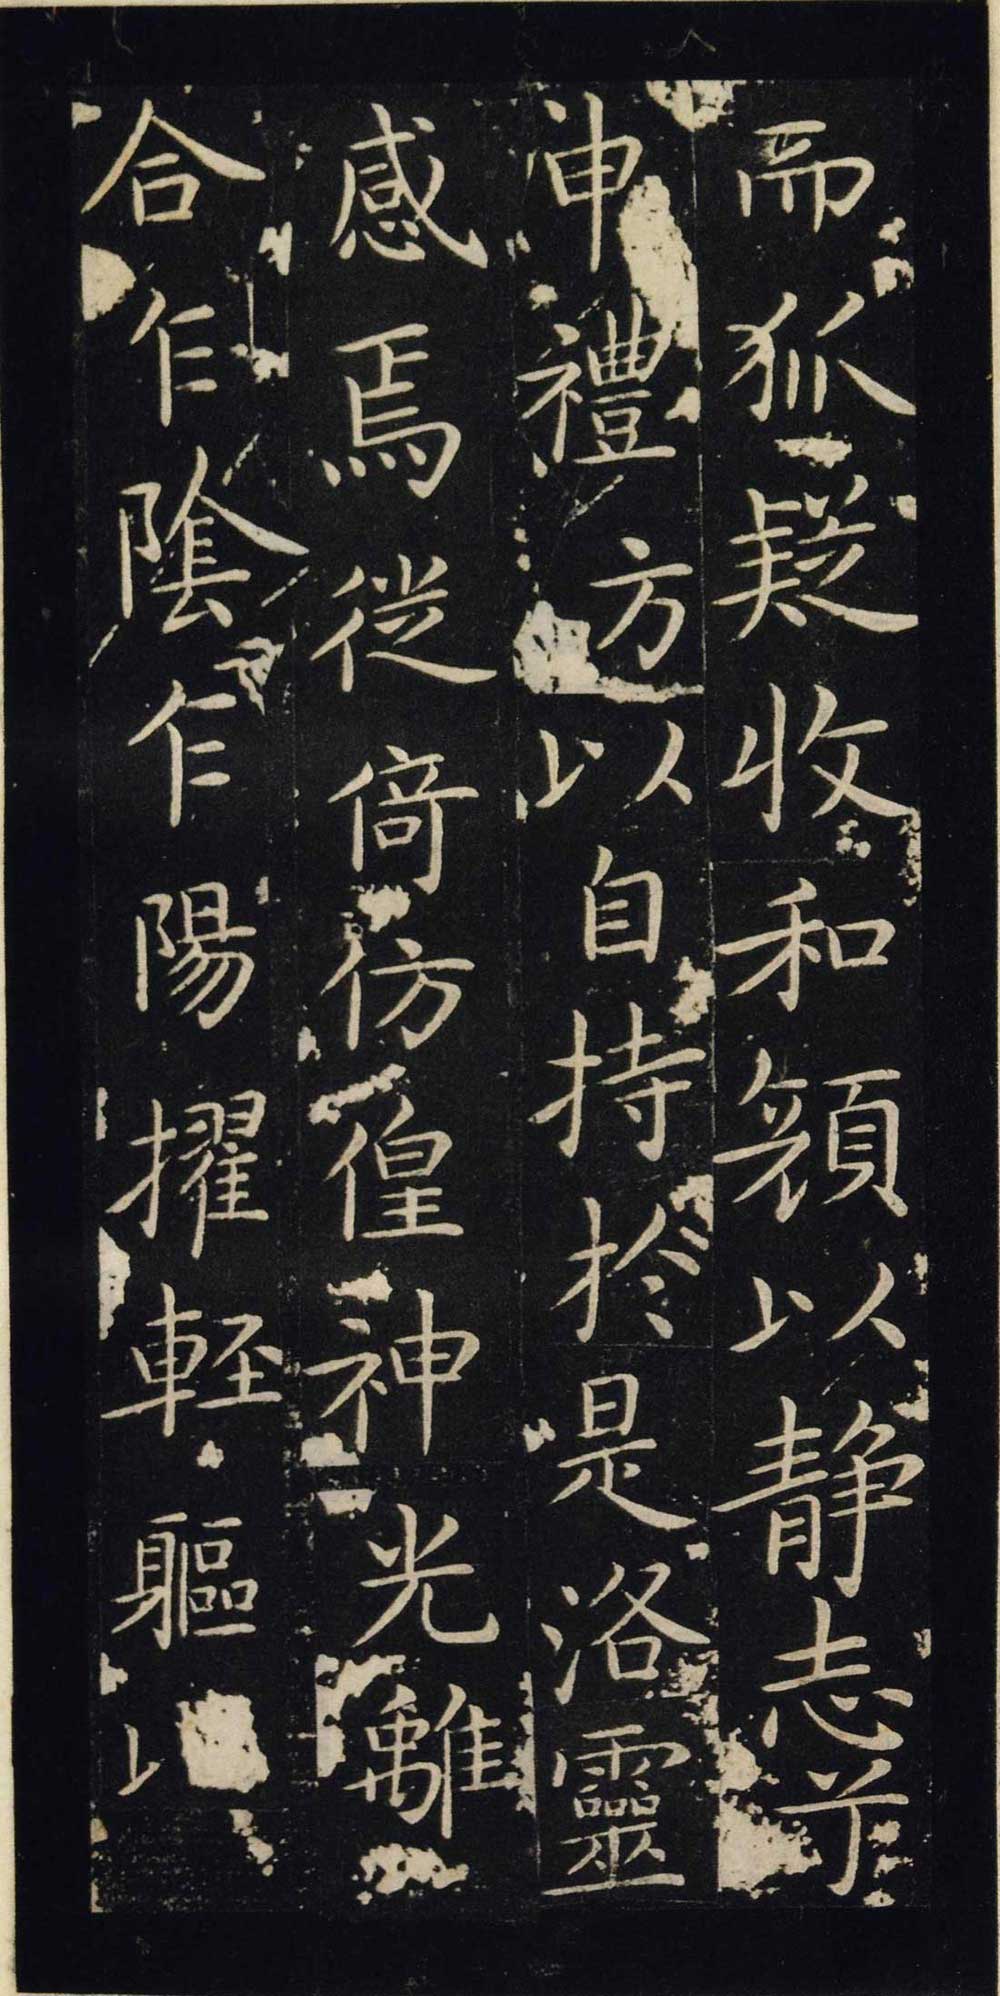 而狐疑收和顏以靜志兮
申禮方以自持於是洛靈
感焉徙倚彷徨神光離
合乍陰乍陽擢輕軀以